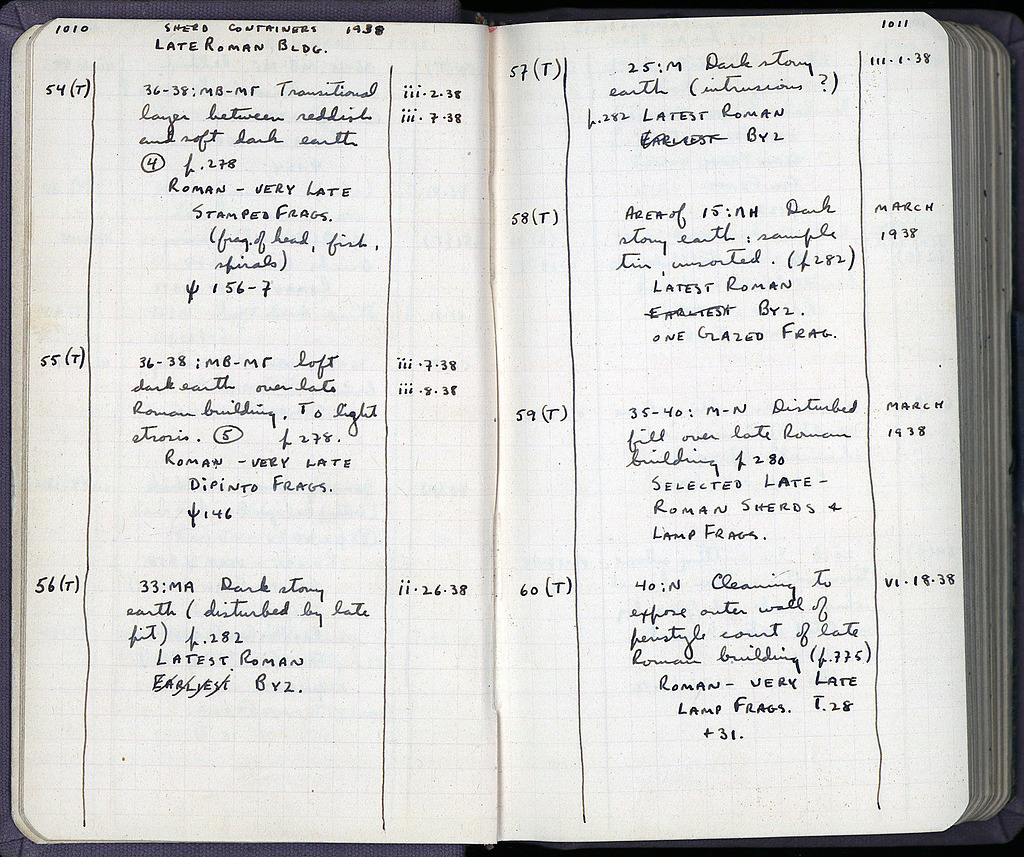 1010 SHERD CONTAINERS 1938
LATE ROMAN BLDG.
54(T) 36-38:MB-MΓ Transitional iii.2.38
layer between reddish iii.7.38
and soft dark earth
④ p.278
ROMAN - VERY LATE
STAMPED FRAGS.
(frag. of head, fish,
spirals)
ψ 156-7
55(T) 36-38:MB-MΓ Soft iii.7.38
dark earth over late iii.8.38
Roman building. To light
strosis. ⑤ p.278.
ROMAN - VERY LATE
DIPINTO FRAGS.
ψ146
56(T) 33:MA Dark stony ii.26.38
earth (disturbed by late
pit) p.282
LATEST ROMAN
EARLIEST BYZ.
1011
57(T) 25:M Dark stony iii.1.38
earth (intrusions?)
p.282 LATEST ROMAN
EARLIEST BYZ
58(T) AREA of 15:ΛH Dark MARCH
stony earth: sample 1938
tin, unsorted. (p282)
LATEST ROMAN
EARLIEST BYZ.
ONE GLAZED FRAG.
59(T) 35-40: M-N Disturbed MARCH
fill over late Roman 1938
building p280
SELECTED LATE-
ROMAN SHERDS +
LAMP FRAGS.
60(T) 40:N Cleaning to VI.18.38
expose outer wall of
peristyle court of late
Roman building (p.775)
ROMAN - VERY LATE
LAMP FRAGS. T.28
+31.